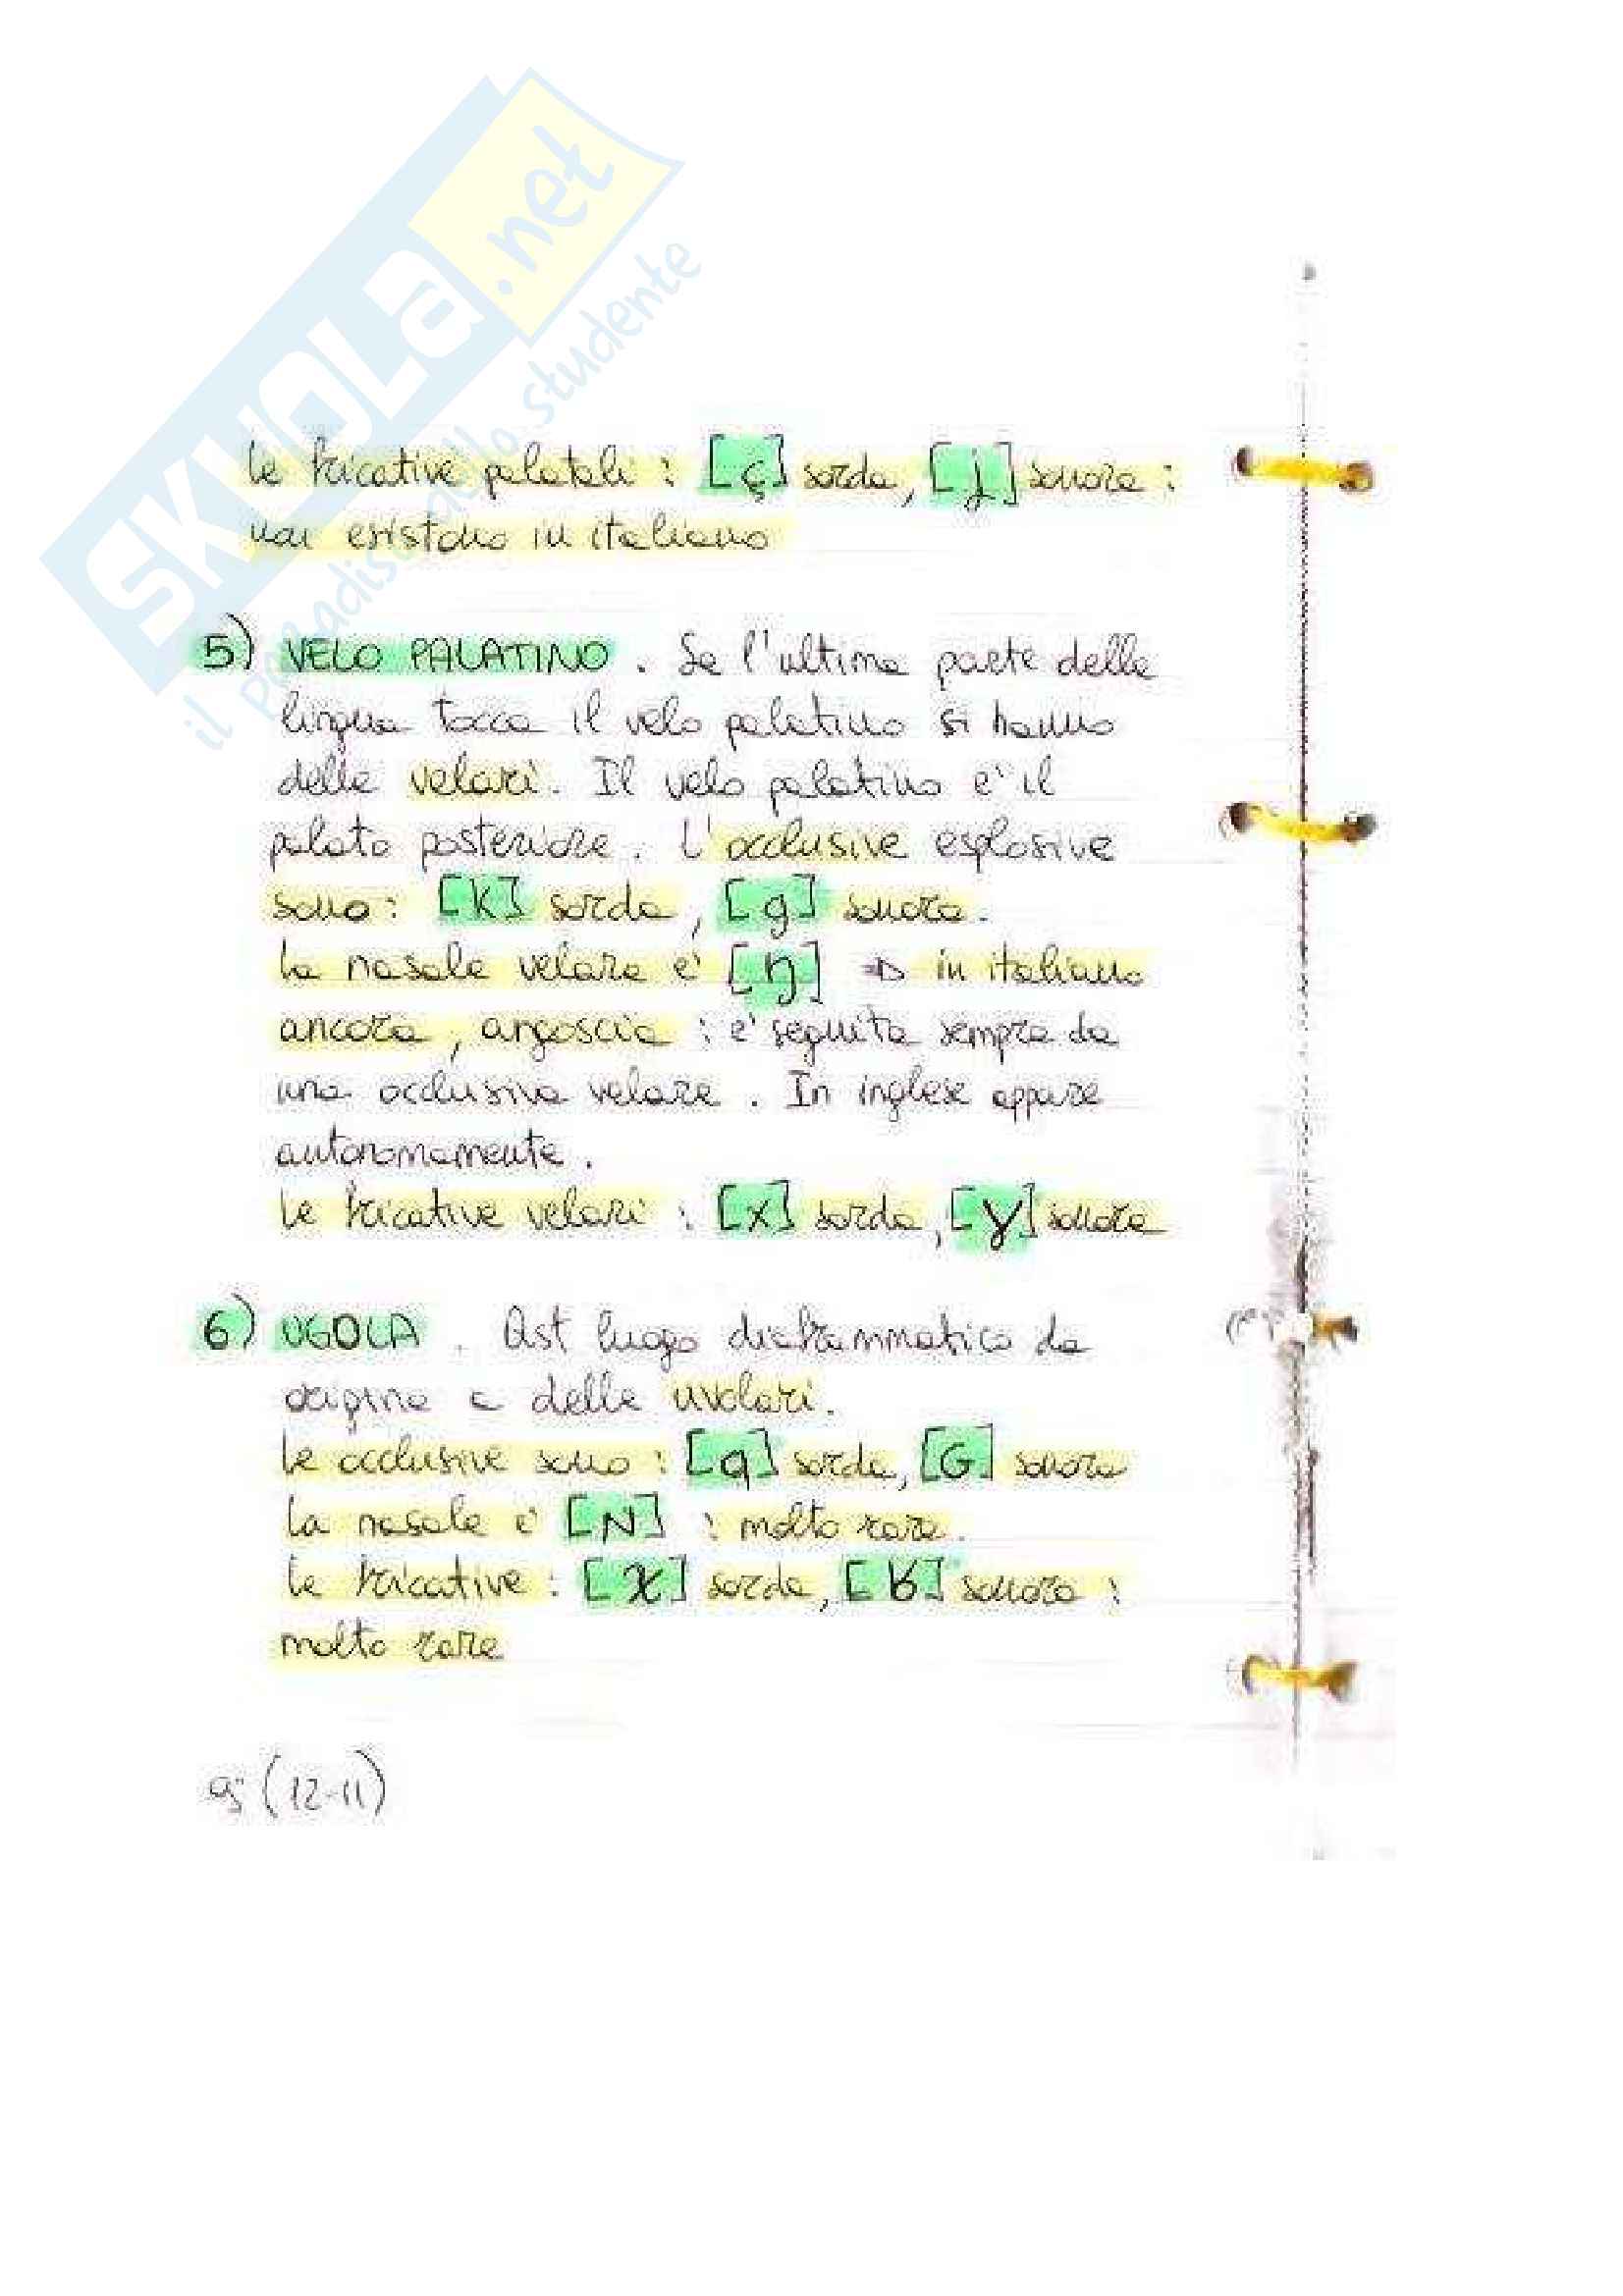 SKUOLA.net
il paradiso dello studente
le fricative palatali : [ç] sorda, [j] sonora :
non esistono in italiano
5) VELO PALATINO . Se l'ultima parte della
lingua tocca il velo palatino si hanno
delle velari. Il velo palatino e' il
palato posteriore. L'occlusive esplosive
sono: [k] sorda, [g] sonora.
La nasale velare e' [ŋ] ⇒ in italiano
ancora, angoscia : e' seguita sempre da
una occlusiva velare . In inglese appare
autonomamente .
Le fricative velari : [x] sorda, [ɣ] sonora
6) UGOLA . Qst luogo diaframmatico da
origine a delle uvulari.
Le occlusive sono : [q] sorda, [G] sonora
La nasale e' [N] : molto rara.
Le fricative : [χ] sorda, [ʁ] sonora :
molto rare
(12-11)